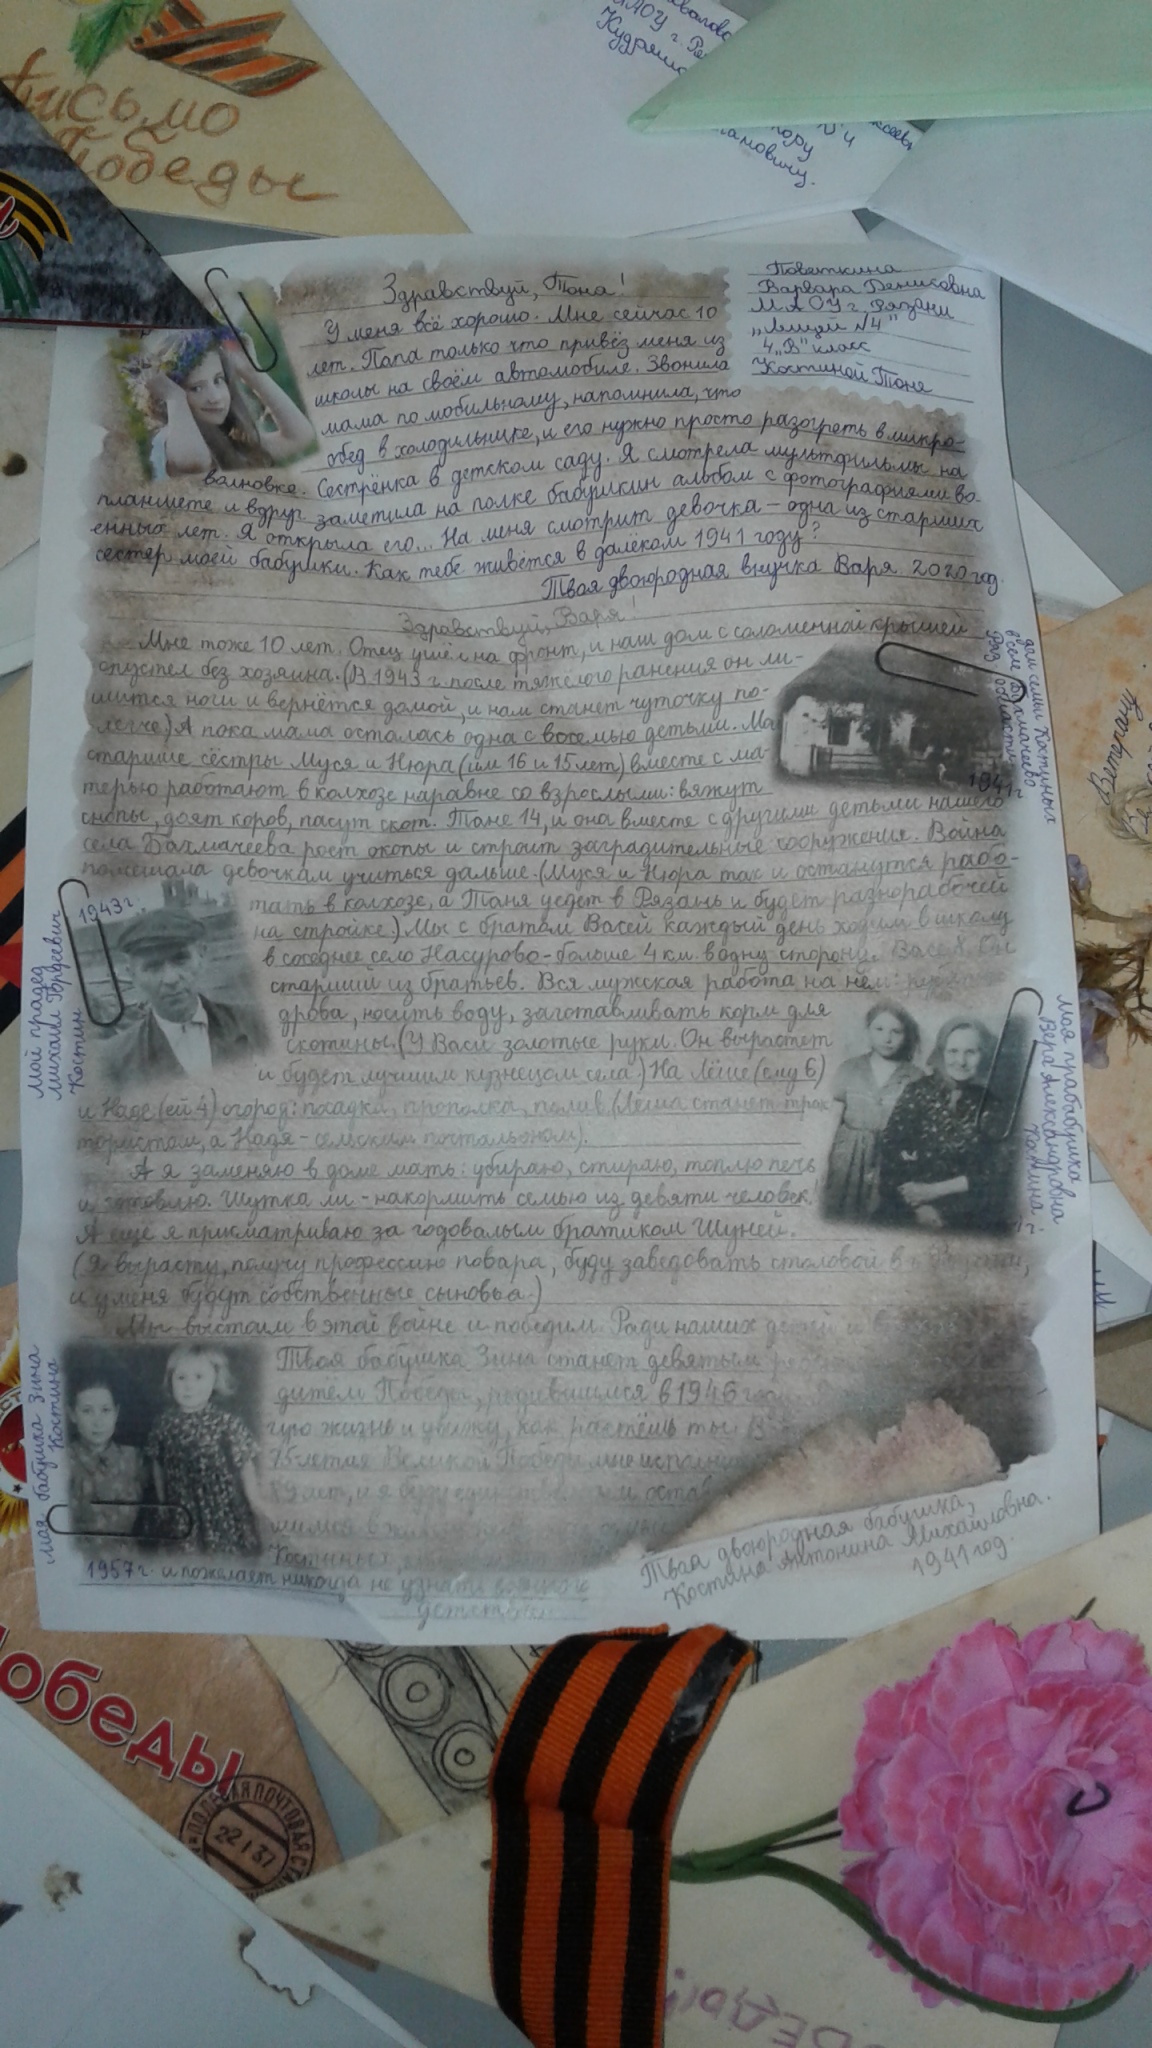 Письмо
Победы
МАОУ г.
Здравствуй, Тоня!
Поветкина
Варвара Денисовна
МАОУ г. Рязани
„Лицей №4"
4 „В" класс
Костиной Тоне
У меня всё хорошо. Мне сейчас 10
лет. Папа только что привёз меня из
школы на своём автомобиле. Звонила
мама по мобильному, напомнила, что
обед в холодильнике, и его нужно просто разогреть в микро-
волновке. Сестрёнка в детском саду. Я смотрела мультфильмы на
планшете и вдруг заметила на полке бабушкин альбом с фотографиями во-
енных лет. Я открыла его... На меня смотрит девочка – одна из старших
сестёр моей бабушки. Как тебе живётся в далёком 1941 году?
Твоя двоюродная внучка Варя. 2020 год.
Здравствуй, Варя!
Мне тоже 10 лет. Отец ушёл на фронт, и наш дом с соломенной крышей
опустел без хозяина. (В 1943 г. после тяжёлого ранения он ли-
шится ноги и вернётся домой, и нам станет чуточку по-
легче) А пока мама осталась одна с восемью детьми. Мо
старшие сёстры Муся и Нюра (им 16 и 15 лет) вместе с ма-
терью работают в колхозе наравне со взрослыми: вяжут
снопы, доят коров, пасут скот. Тане 14, и она вместе с другими детьми нашего
села Бахмачеева роет окопы и строит заградительные сооружения. Война
помешала девочкам учиться дальше. (Муся и Нюра так и останутся рабо-
тать в колхозе, а Таня уедет в Рязань и будет разнорабочей
на стройке.) Мы с братом Васей каждый день ходим в школу
в соседнее село Насурово – больше 4 км. в одну сторону. Васе 8. Он
старший из братьев. Вся мужская работа на нём:
дрова, носить воду, заготавливать корм для
скотины. (У Васи золотые руки. Он вырастет
и будет лучшим кузнецом села.) На Лёше (ему 6)
и Наде (ей 4) огород: посадка, прополка, полив. (Лёша станет трак
тористом, а Надя – сельским почтальоном).
А я заменяю в доме мать: убираю, стираю, топлю печь
и готовлю. Шутка ли – накормить семью из девяти человек!
А ещё я присматриваю за годовалым братиком Шуней.
(Я вырасту, получу профессию повара, буду заведовать столовой в
и у меня будут собственные сыновья.)
Мы выстоим в этой войне и победим. Ради наших детей и
Твоя бабушка Зина станет девятым
дитём Победы, родившимся в 1946
гую жизнь и увижу, как растёшь ты. В
75-летие Великой Победы мне исполни
89 лет, и я буду единственным остав
шимся в
Костиных,
и пожелает никогда не узнать военного
детства.
Твоя двоюродная бабушка,
Костина Антонина Михайловна.
1941 год.
дом семьи Костиных
в селе Бахмачеево
Ряз. области
1941 г
1943 г.
Мой прадед
Михаил Гордеевич
Костин
Моя прабабушка
Вера Александровна
Костина
моя бабушка Зина
Костина
1957 г.
Ветерану
Победы
22.1.37